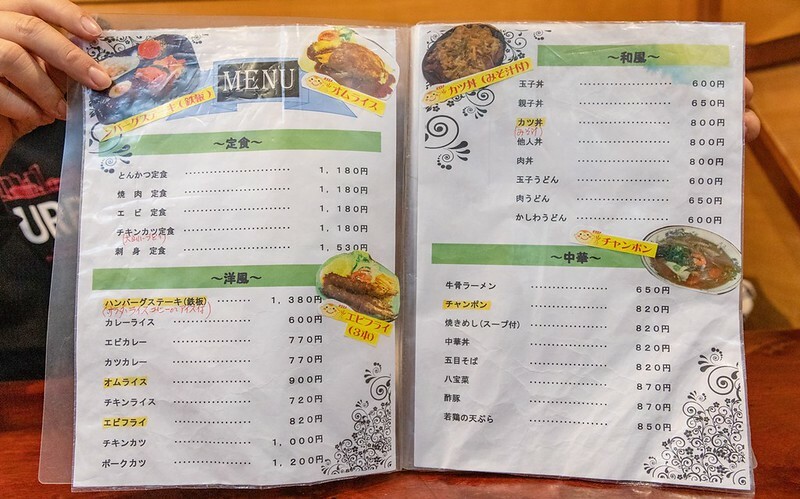 MENU
ンバーグステーキ(鉄板)
オムライス
～定食～
とんかつ定食 ……………… 1,180円
焼肉 定食 ……………… 1,180円
エビ 定食 ……………… 1,180円
チキンカツ定食 ……………… 1,180円
刺身 定食 ……………… 1,530円
～洋風～
ハンバーグステーキ(鉄板) ……… 1,380円
カレーライス ……………… 600円
エビカレー ……………… 770円
カツカレー ……………… 770円
オムライス ……………… 900円
チキンライス ……………… 720円
エビフライ ……………… 820円
チキンカツ ……………… 1,000円
ポークカツ ……………… 1,200円
エビフライ
(3本)
カツ丼(みそ汁付)
～和風～
玉子丼 ……………… 600円
親子丼 ……………… 650円
カツ丼 ……………… 800円
他人丼 ……………… 800円
肉丼 ……………… 800円
玉子うどん ……………… 600円
肉うどん ……………… 650円
かしわうどん ……………… 600円
チャンポン
～中華～
牛骨ラーメン ……………… 650円
チャンポン ……………… 820円
焼きめし(スープ付) ……………… 820円
中華丼 ……………… 820円
五目そば ……………… 820円
八宝菜 ……………… 870円
酢豚 ……………… 870円
若鶏の天ぷら ……………… 850円